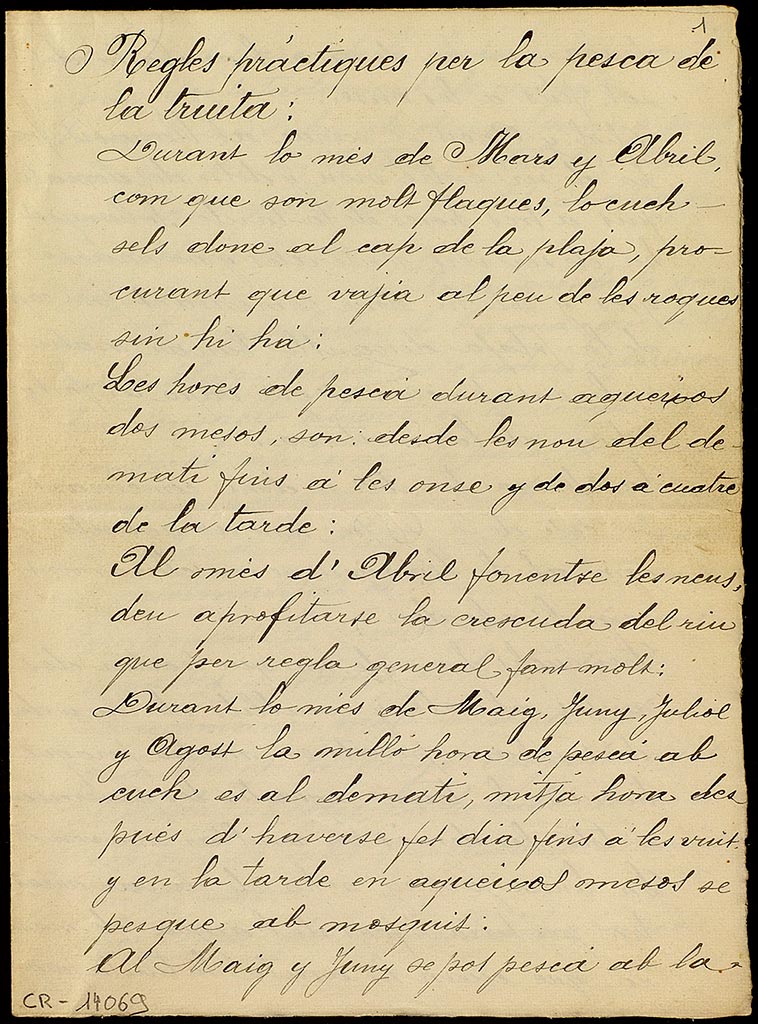 1
Regles práctiques per la pesca de
la truita:
Durant lo mès de Mars y Abril,
com que son molt flaques, lo cuch
sels done al cap de la plaja, pro-
curant que vajia al peu de les roques
sin hi há:
Les hores de pescá durant aqueixos
dos mesos, son: desde les nou del de-
matí fins á les onse y de dos á cuatre
de la tarde:
Al mès d' Abril fonentse les neus,
deu aprofitarse la crescuda del riu
que per regla general fant molt:
Durant lo mès de Maig, Juny, Juliol
y Agost la milló hora de pescá ab
cuch es al dematí, mitjá hora des
pués d' haverse fet dia fins á les vuit,
y en la tarde en aqueixos mesos se
pesque ab mosquit:
Al Maig y Juny se pot pescá ab la
CR - 14069